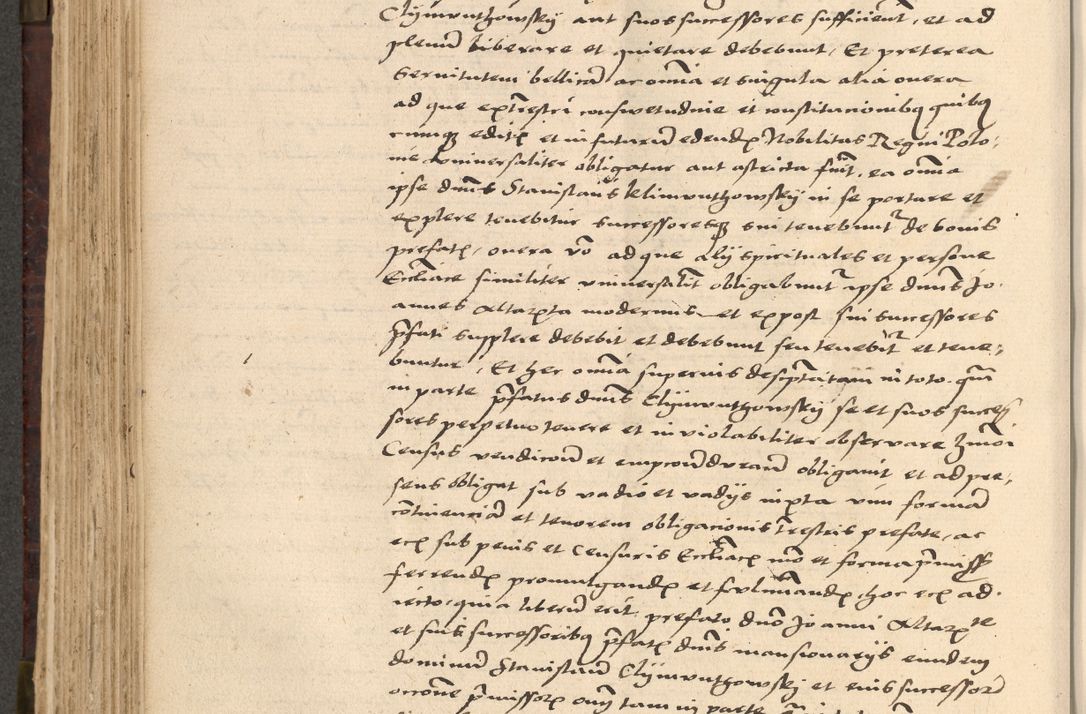 Clijmunthowskij aut suos successores sufficient, et ad
plenu liberare et quietare debebunt, Et preterea
Servitutem bellica ac omia et singula alia onera
ad que ex trestri consuetudine et constitucionibq quibq
cumq edit et in futuru edend Nobilitas Regni Polo:
nie universaliter obligatur aut astricta fuit, ea omia
ipse dnus Stanislaus klimunthowskij in se portare et
explere tenebitur Successoresq sui tenebunt de bonis
prefat, onera vo ad que alij spirituales et persone
Eccliace similiter universalit obligabunt ipse dnus Jo
annes Altarista modernus et ex post sui successores
pfati supplere debebit et debebunt seu tenebit et tene:
buntur, Et hec omia superius descripta tam in toto qua
in parte pfatus dnus Clijmunthowskij se et suos succes
sores perpetuo tenere et inviolabiliter observare hmoi
Census vendicou et empcou durau obligavit et ad pre:
sens obligat sub vadio et vadijs iuxta vim forma
continencia et tenorem obligacionis trestris prefate, ac
ecia sub penis et Censuris Eccliac mo et forma pmiss
ferrend promulgand et fulminand, hoc ecia ad
iecto quia liberu erit prefato dno Joanni Altariste
et suis successoribq pfat dnis mansionarijs eundem
dominu Stanislau Clijmunthowskij et eius successor
occone pmissor omi tam in parte